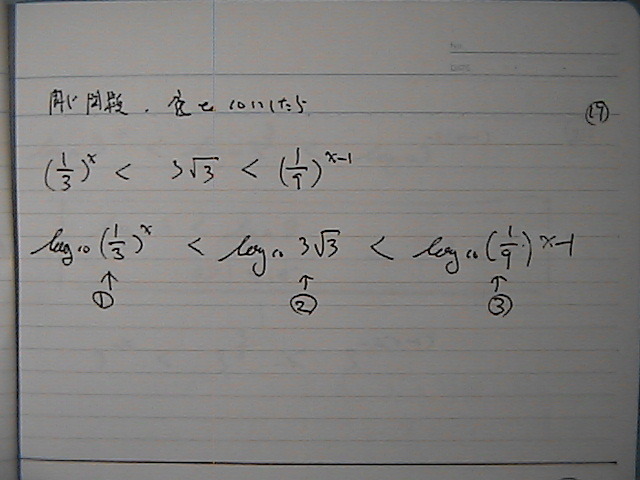 No.
DATE
同じ問題、底を10にしたら
(19)
(1/3)^x < 3√3 < (1/9)^(x-1)
log10(1/3)^x < log10 3√3 < log10(1/9)^(x-1)
↑ ↑ ↑
① ② ③